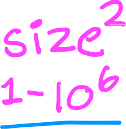 size²
1-10⁶